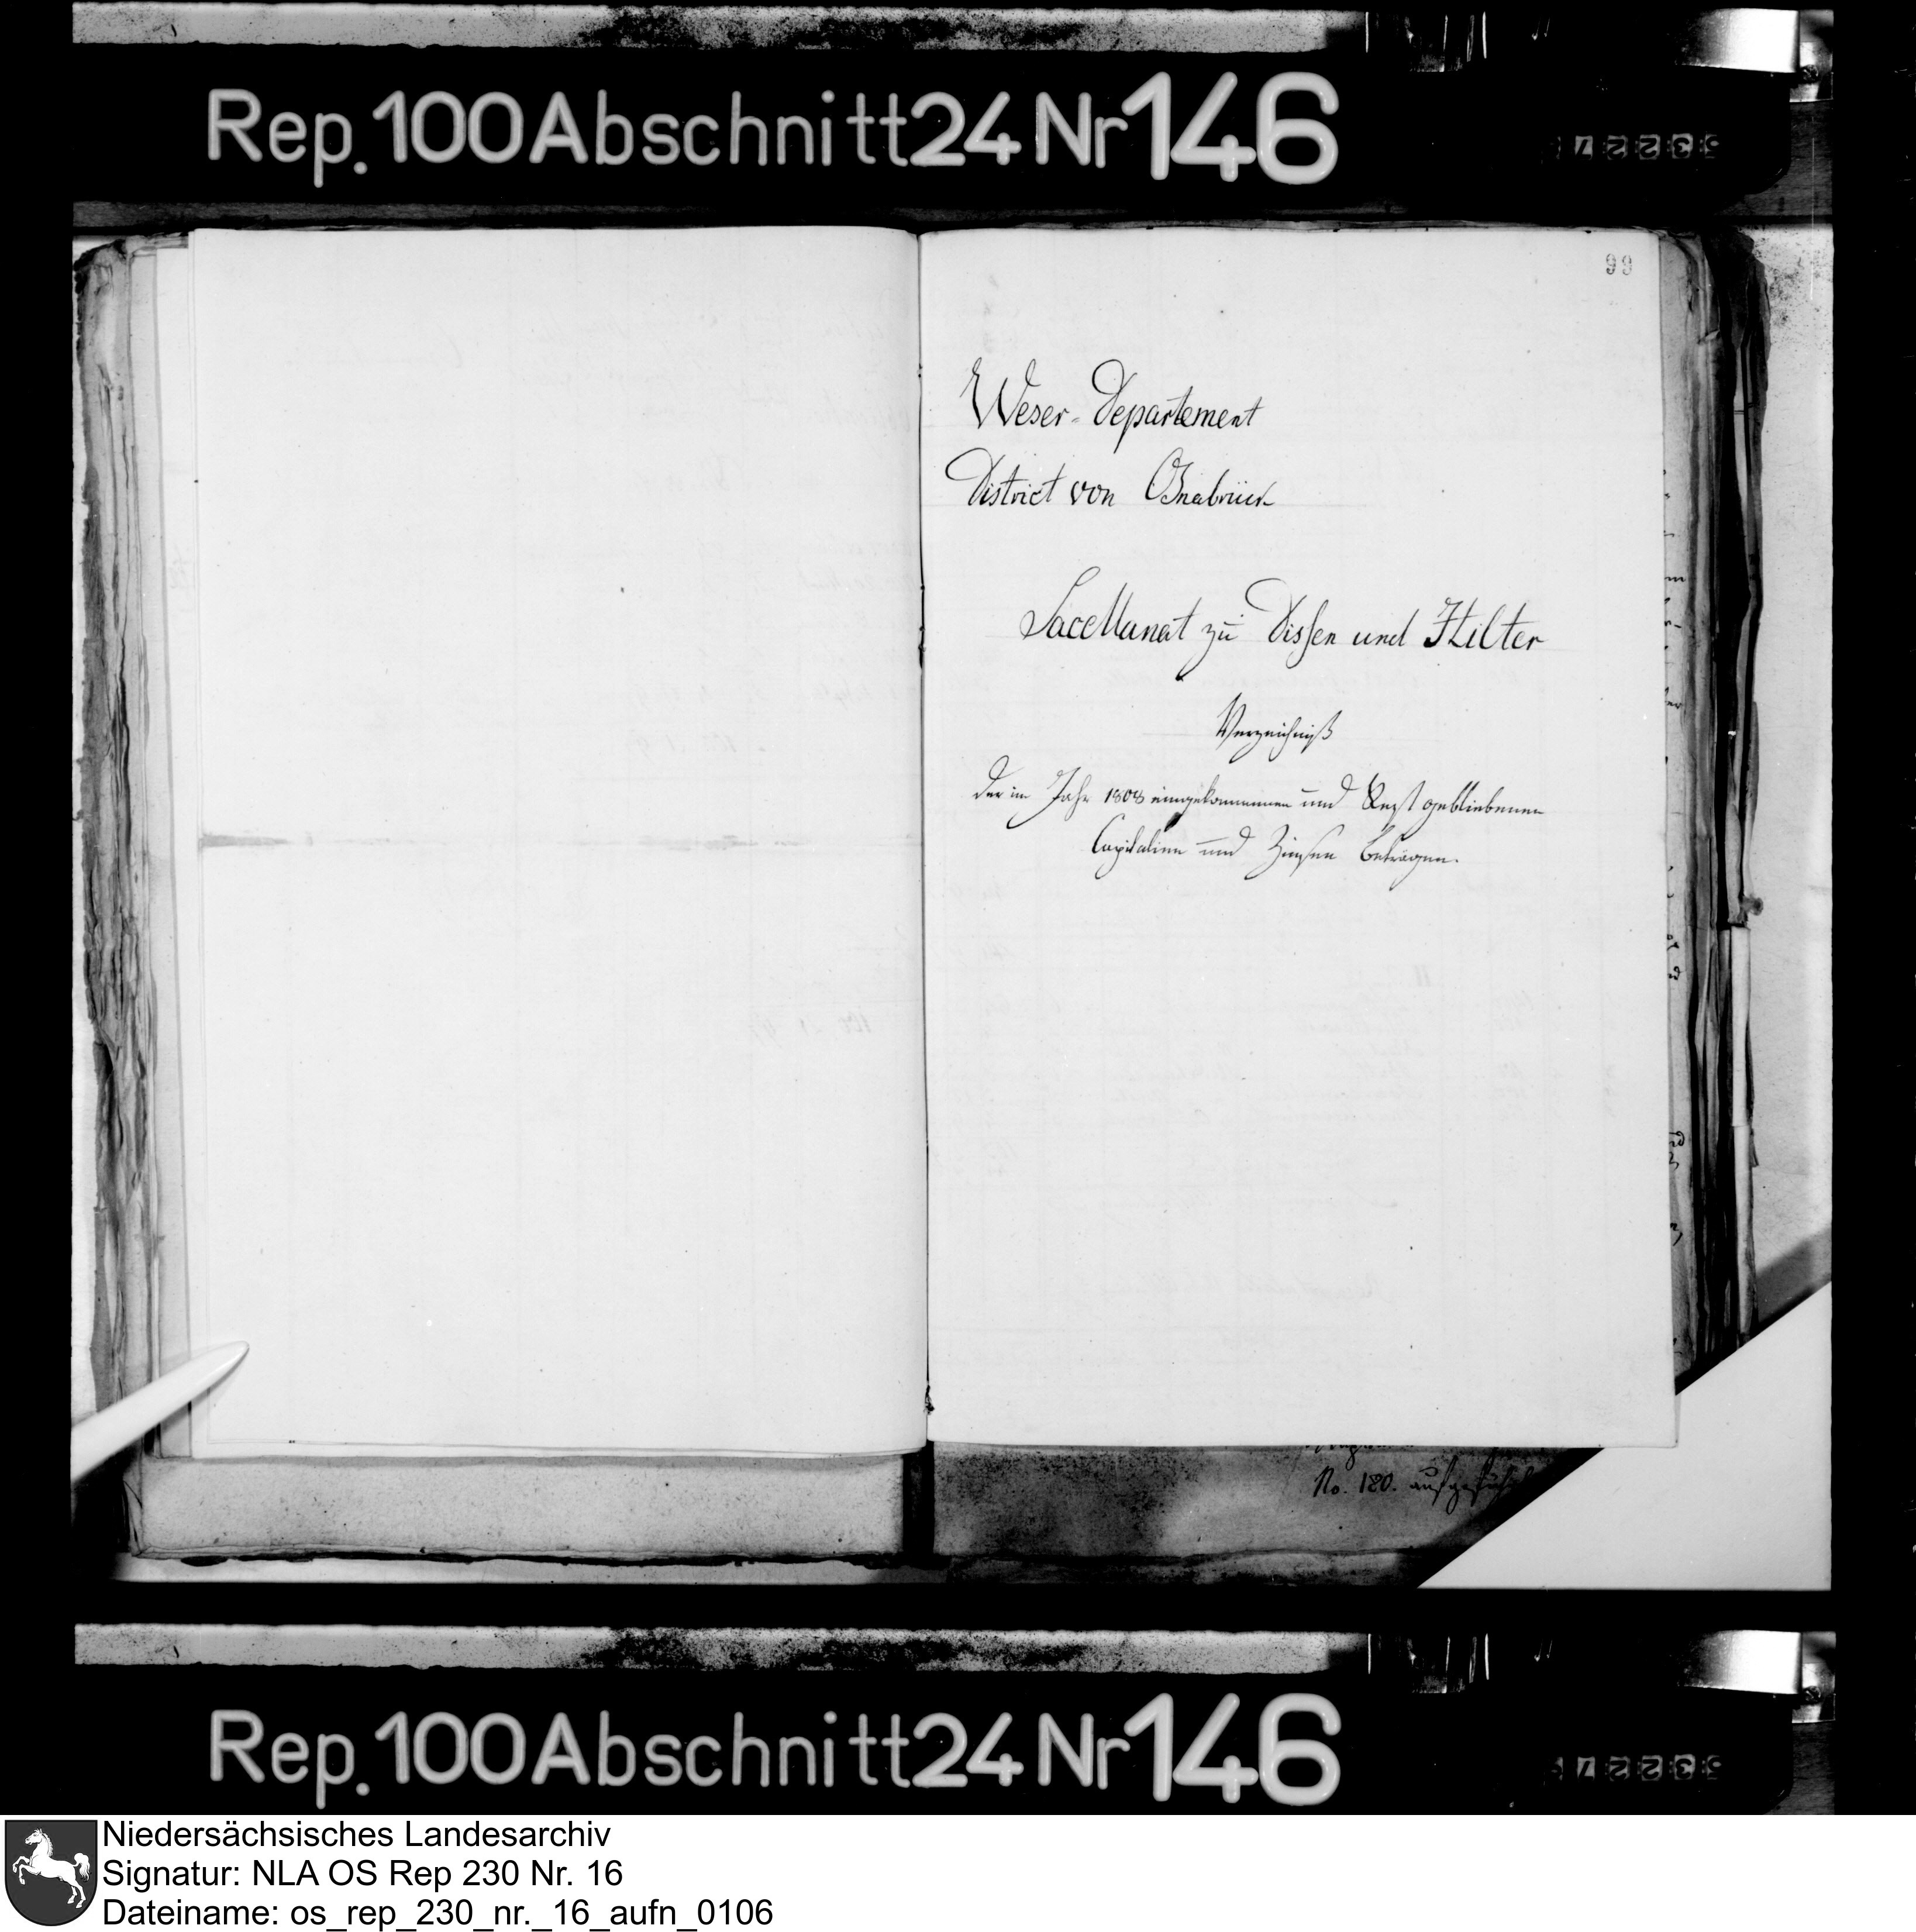 Rep. 100 Abschnitt 24 Nr 146
99
Weser-Departement
District von Osnabrück
Sacellanat zu Dissen und Hilter
Verzeichniß
der im Jahr 1808 eingekommenen und Rest gebliebenen
Capitalien und Zinsen Beträgen.
No. 180. aufgeführ
Rep. 100 Abschnitt 24 Nr 146
Niedersächsisches Landesarchiv
Signatur: NLA OS Rep 230 Nr. 16
Dateiname: os_rep_230_nr._16_aufn_0106